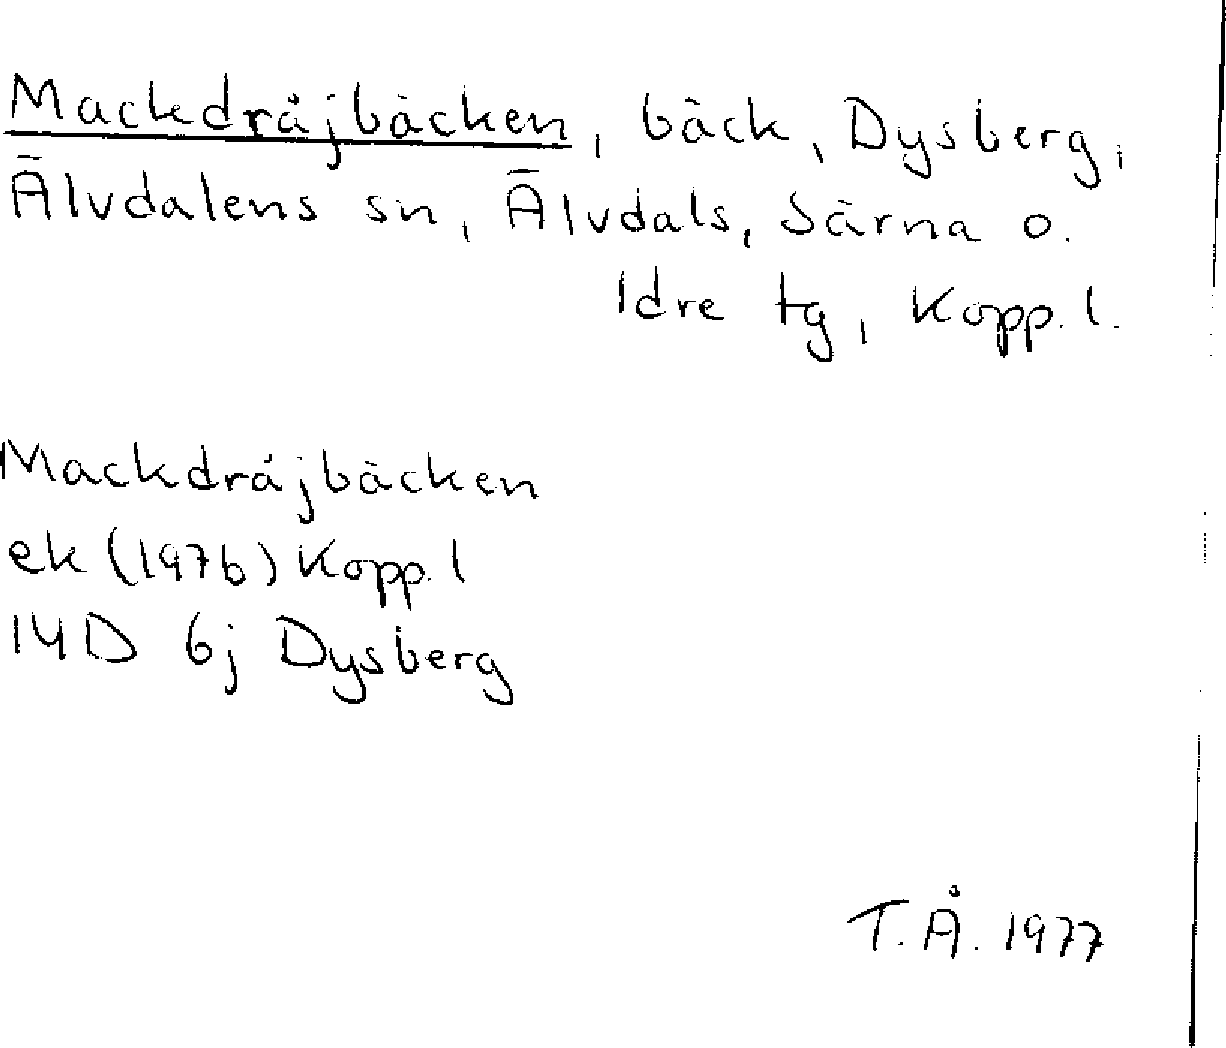 Mackdråjbäcken, bäck, Dysberg,
Älvdalens sn, Älvdals, Särna o.
Idre tg, Kopp. l.
Mackdråjbäcken
ek (1976) Kopp. l
14D 6j Dysberg
T.Å. 1977